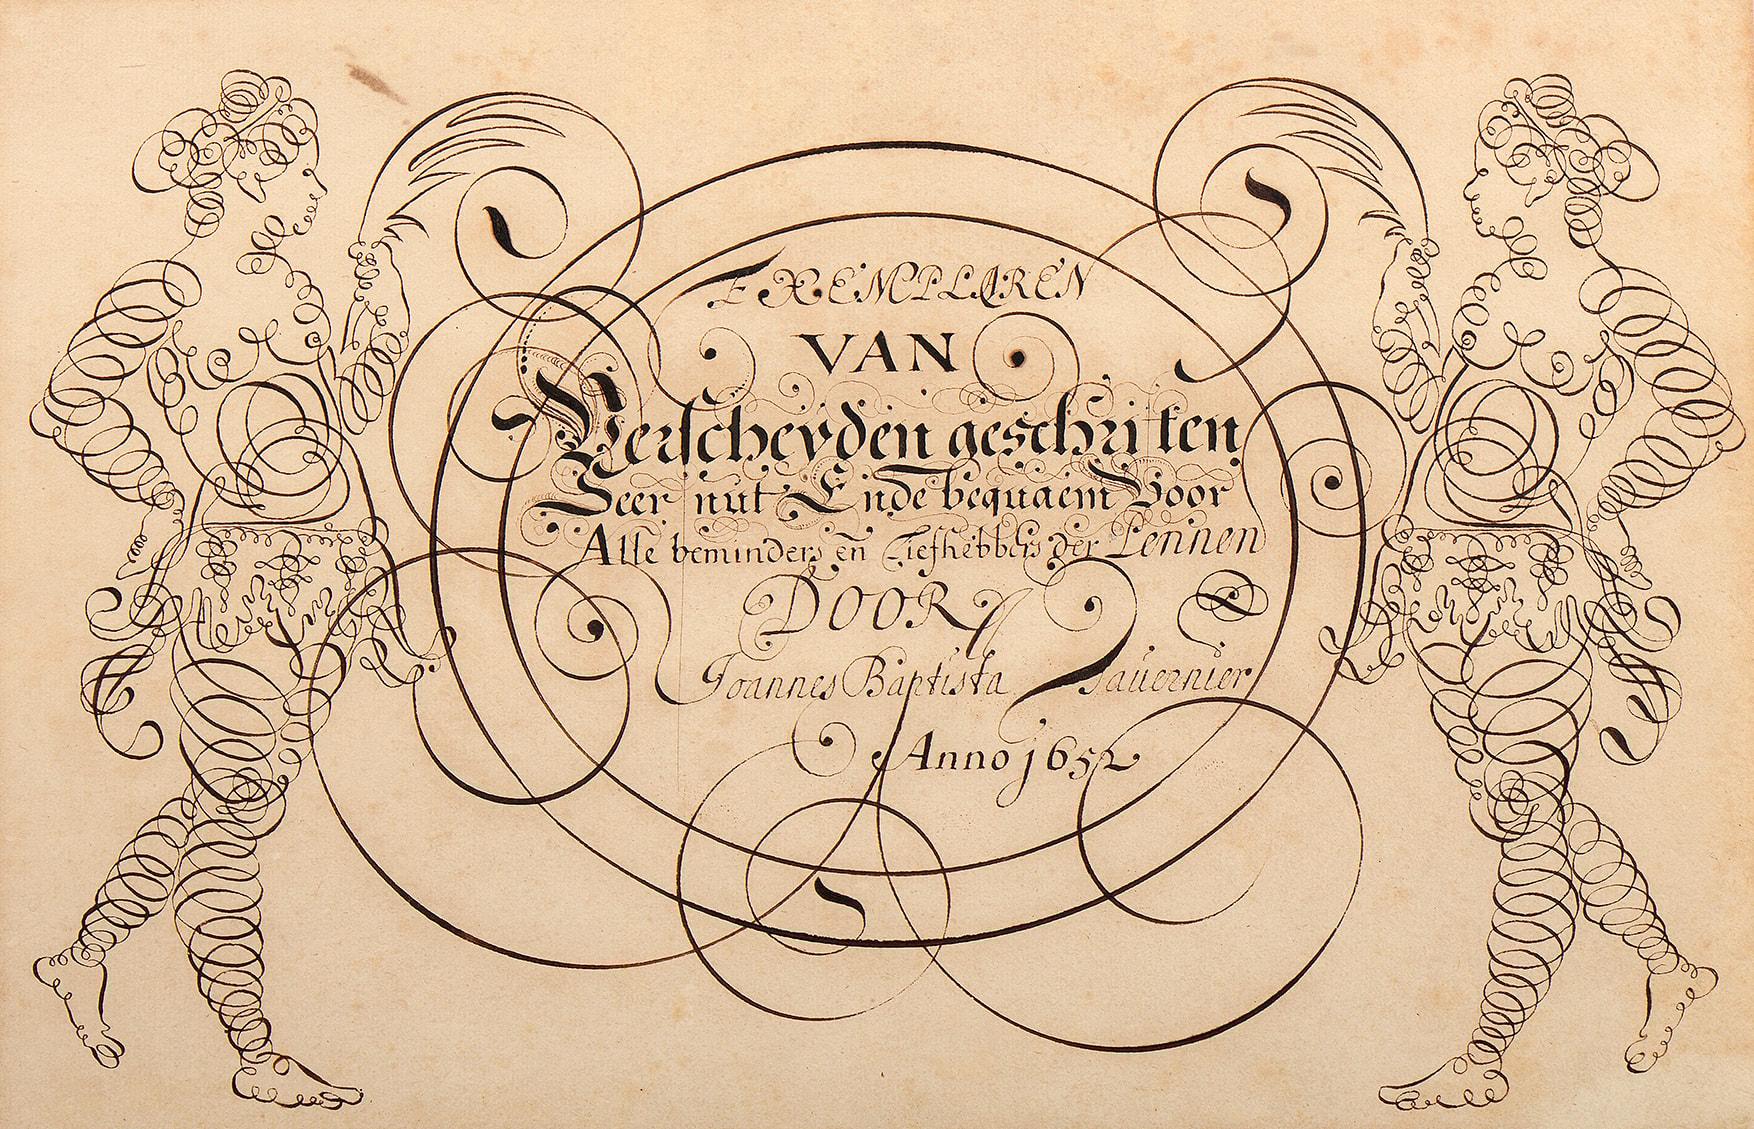 EXEMPLAREN
VAN
Verscheyden geschriften
Seer nut Ende bequaem Voor
Alle beminders en Liefhebbers der Pennen
DOOR
Joannes Baptista Tavernier
Anno 1652